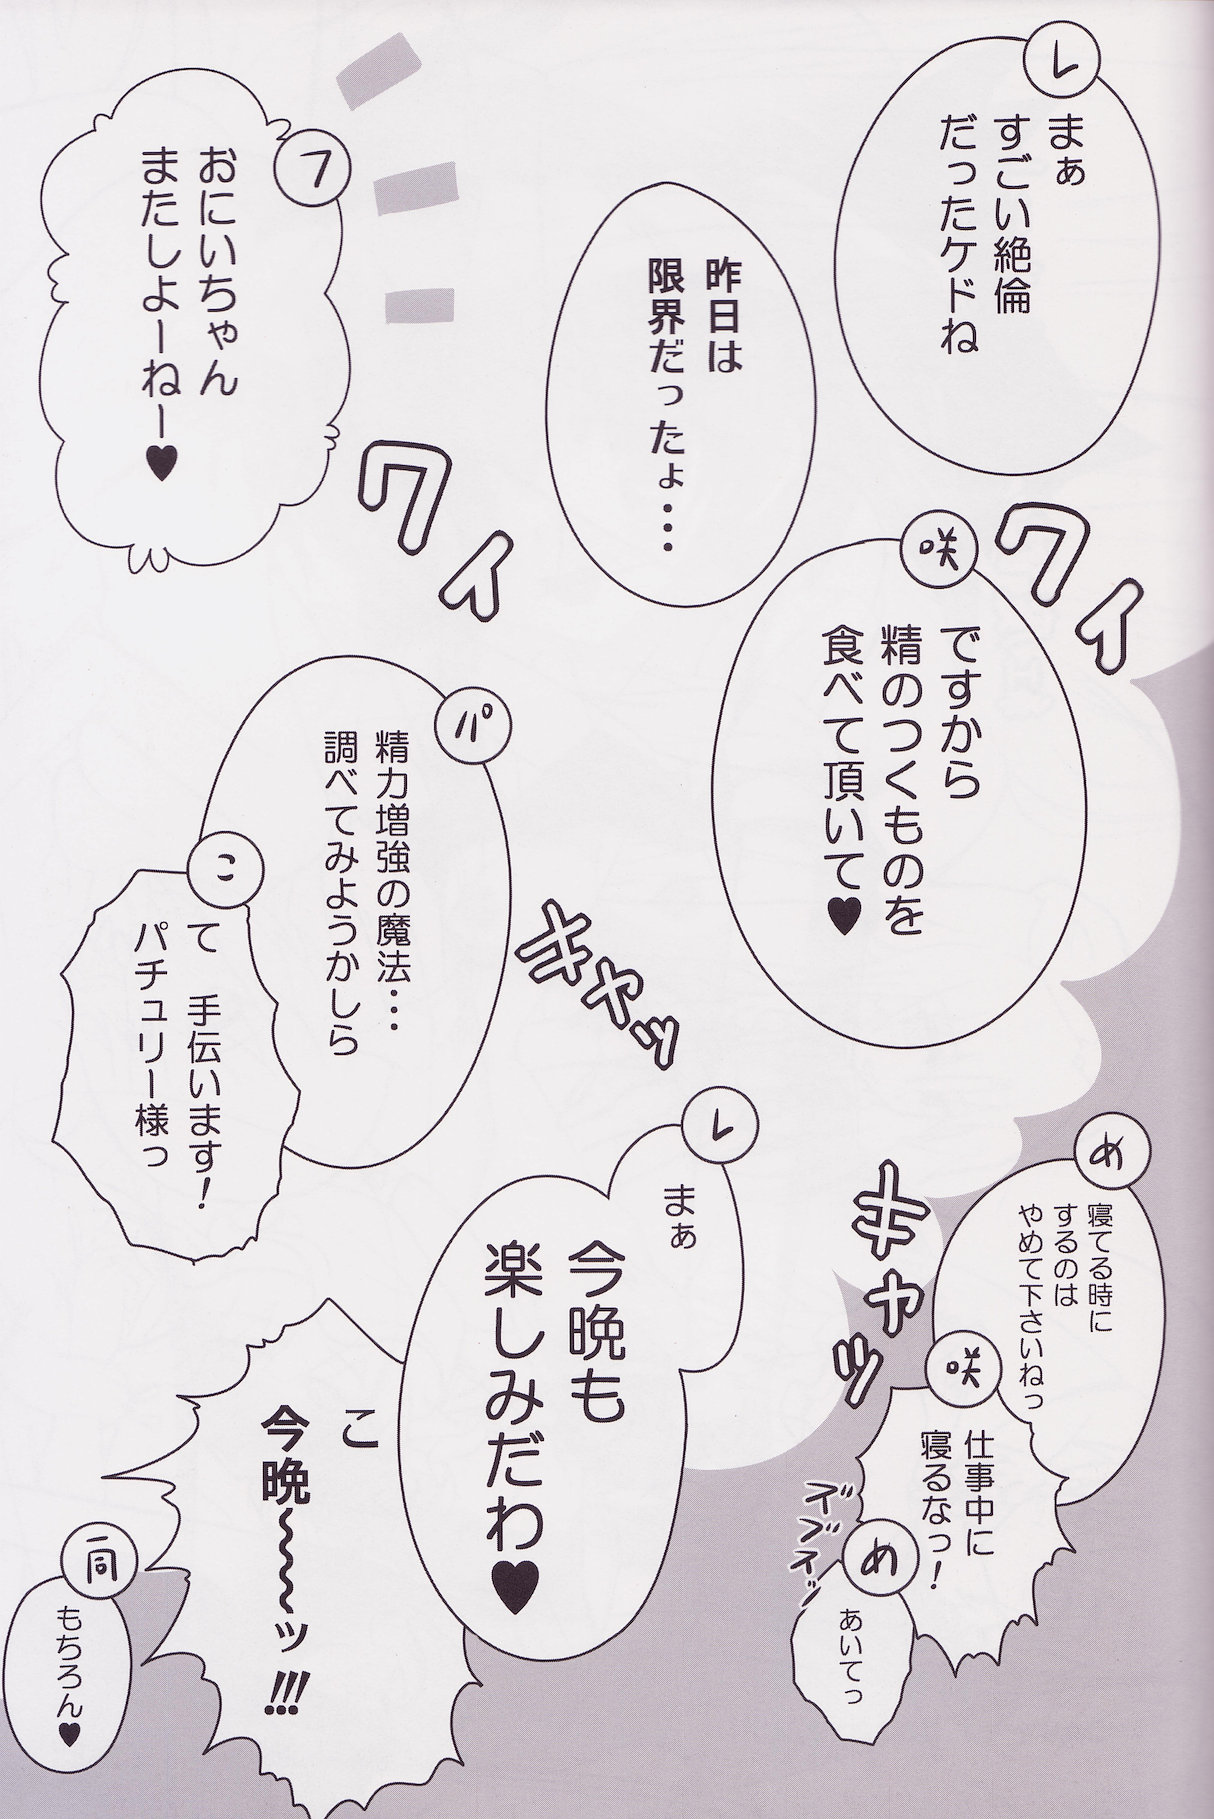 レ
まぁ
すごい絶倫
だったケドね
昨日は
限界だったょ…
フ
おにいちゃん
またしよーねー♥
ワイ
ワイ
咲
ですから
精のつくものを
食べて頂いて♥
パ
精力増強の魔法…
調べてみようかしら
こ
て 手伝います！
パチュリー様っ
キャッ
キャッ
め
寝てる時に
するのは
やめて下さいねっ
咲
仕事中に
寝るなっ！
め
あいてっ
レ
まぁ
今晩も
楽しみだわ♥
こ
今晩～～～ッ!!!
一同
もちろん♥